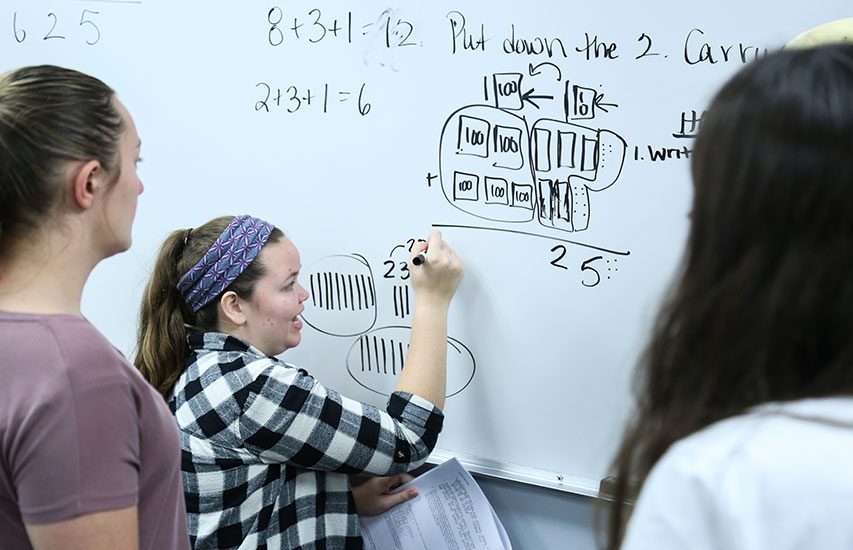 6 2 5
8+3+1=12.
Put down the 2. Carry
2+3+1=6
1 100
10
100 100
1. Writ
+
100 100 100
2 5
23